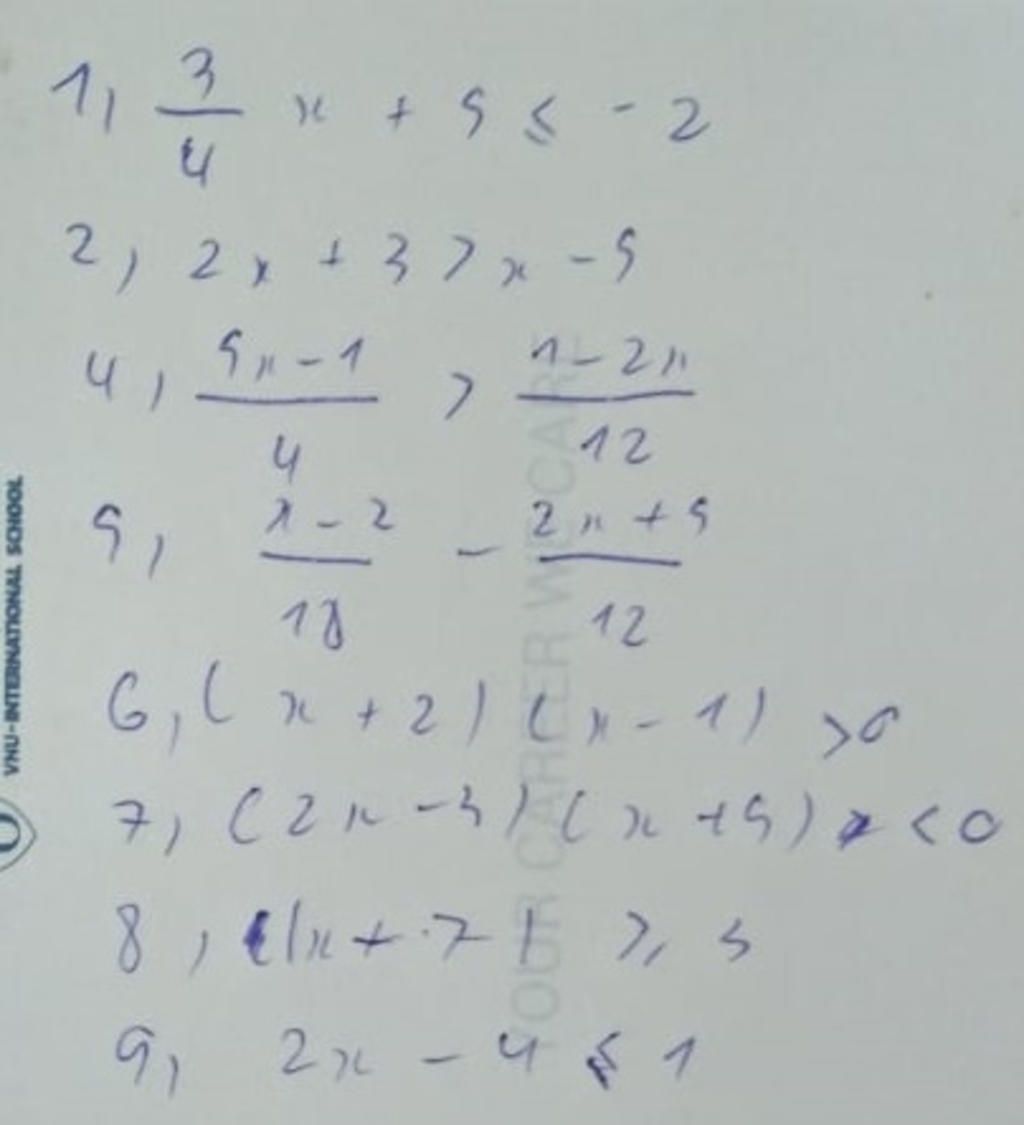 1, 3/4 x + 5 ≤ -2
2, 2x + 3 > x - 5
4, 5x - 1 / 4 > 1 - 2x / 12
5, x - 2 / 18 - 2x + 5 / 12
6, (x + 2) (x - 1) > 0
7, (2x - 3) (x + 5) < 0
8, |x + 7| ≥ 3
9, 2x - 4 ≤ 1
VNU-INTERNATIONAL SCHOOL
YOUR CAREER WE CARE